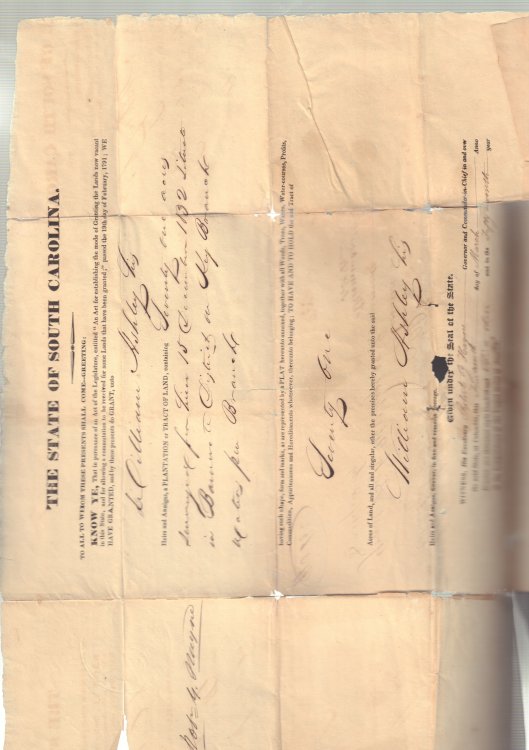 THE STATE OF SOUTH CAROLINA.
TO ALL TO WHOM THESE PRESENTS SHALL COME—GREETING:
KNOW YE, That in pursuance of an Act of the Legislature, entitled "An Act for establishing the mode of Granting the Lands now vacant
in this State, and for allowing a commutation to be received for some Lands that have been granted," passed the 19th day of February, 1791: WE
HAVE GRANTED, and by these presents do GRANT, unto
William Ashley his
Heirs and Assigns, a PLANTATION or TRACT OF LAND, containing Seventy one acres
Surveyed for him 15 December 1832 Situate
in Barnwell District on Branch
Waters
having such shape, form and marks, as are represented by a PLAT hereunto annexed, together with all Woods, Trees, Waters, Water-courses, Profits,
Commodities, Appurtenances and Hereditaments whatsoever, thereunto belonging: TO HAVE AND TO HOLD the said Tract of
Seventy One
Acres of Land, and all and singular, other the premises hereby granted unto the said
William Ashley his
Heirs and Assigns, forever, in free and common
Given under the Seal of the State.
WITNESS, His Excellency Robert Y Hayne Governor and Commander-in-Chief in and over
day of March Anno
and in the fifty seventh year
Rob. Y. Hayne